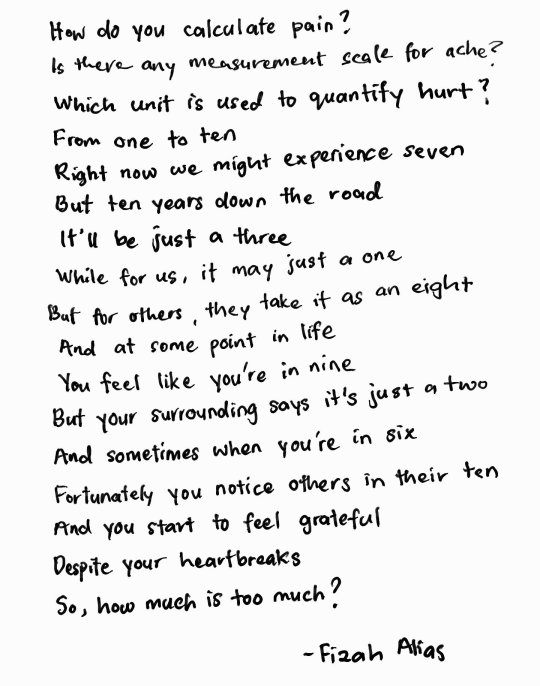 How do you calculate pain?
Is there any measurement scale for ache?
Which unit is used to quantify hurt?
From one to ten
Right now we might experience seven
But ten years down the road
It'll be just a three
While for us, it may just a one
But for others, they take it as an eight
And at some point in life
You feel like you're in nine
But your surrounding says it's just a two
And sometimes when you're in six
Fortunately you notice others in their ten
And you start to feel grateful
Despite your heartbreaks
So, how much is too much?
-Fizah Alias